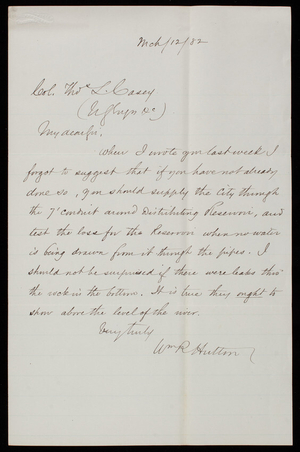 Mch/12/82
Col. Thos. L. Casey
My dear Sir,
When I wrote you last week I
forgot to suggest that if you have not already
done so, you should supply the City through
the 7' conduit around Distributing Reservoir, and
test the loss for the Reservoir when no water
is being drawn from it through the pipes. I
should not be surprised if there were leaks thro'
the rock in the bottom. It is true they ought to
show above the level of the river.
Very truly
Wm R Hutton